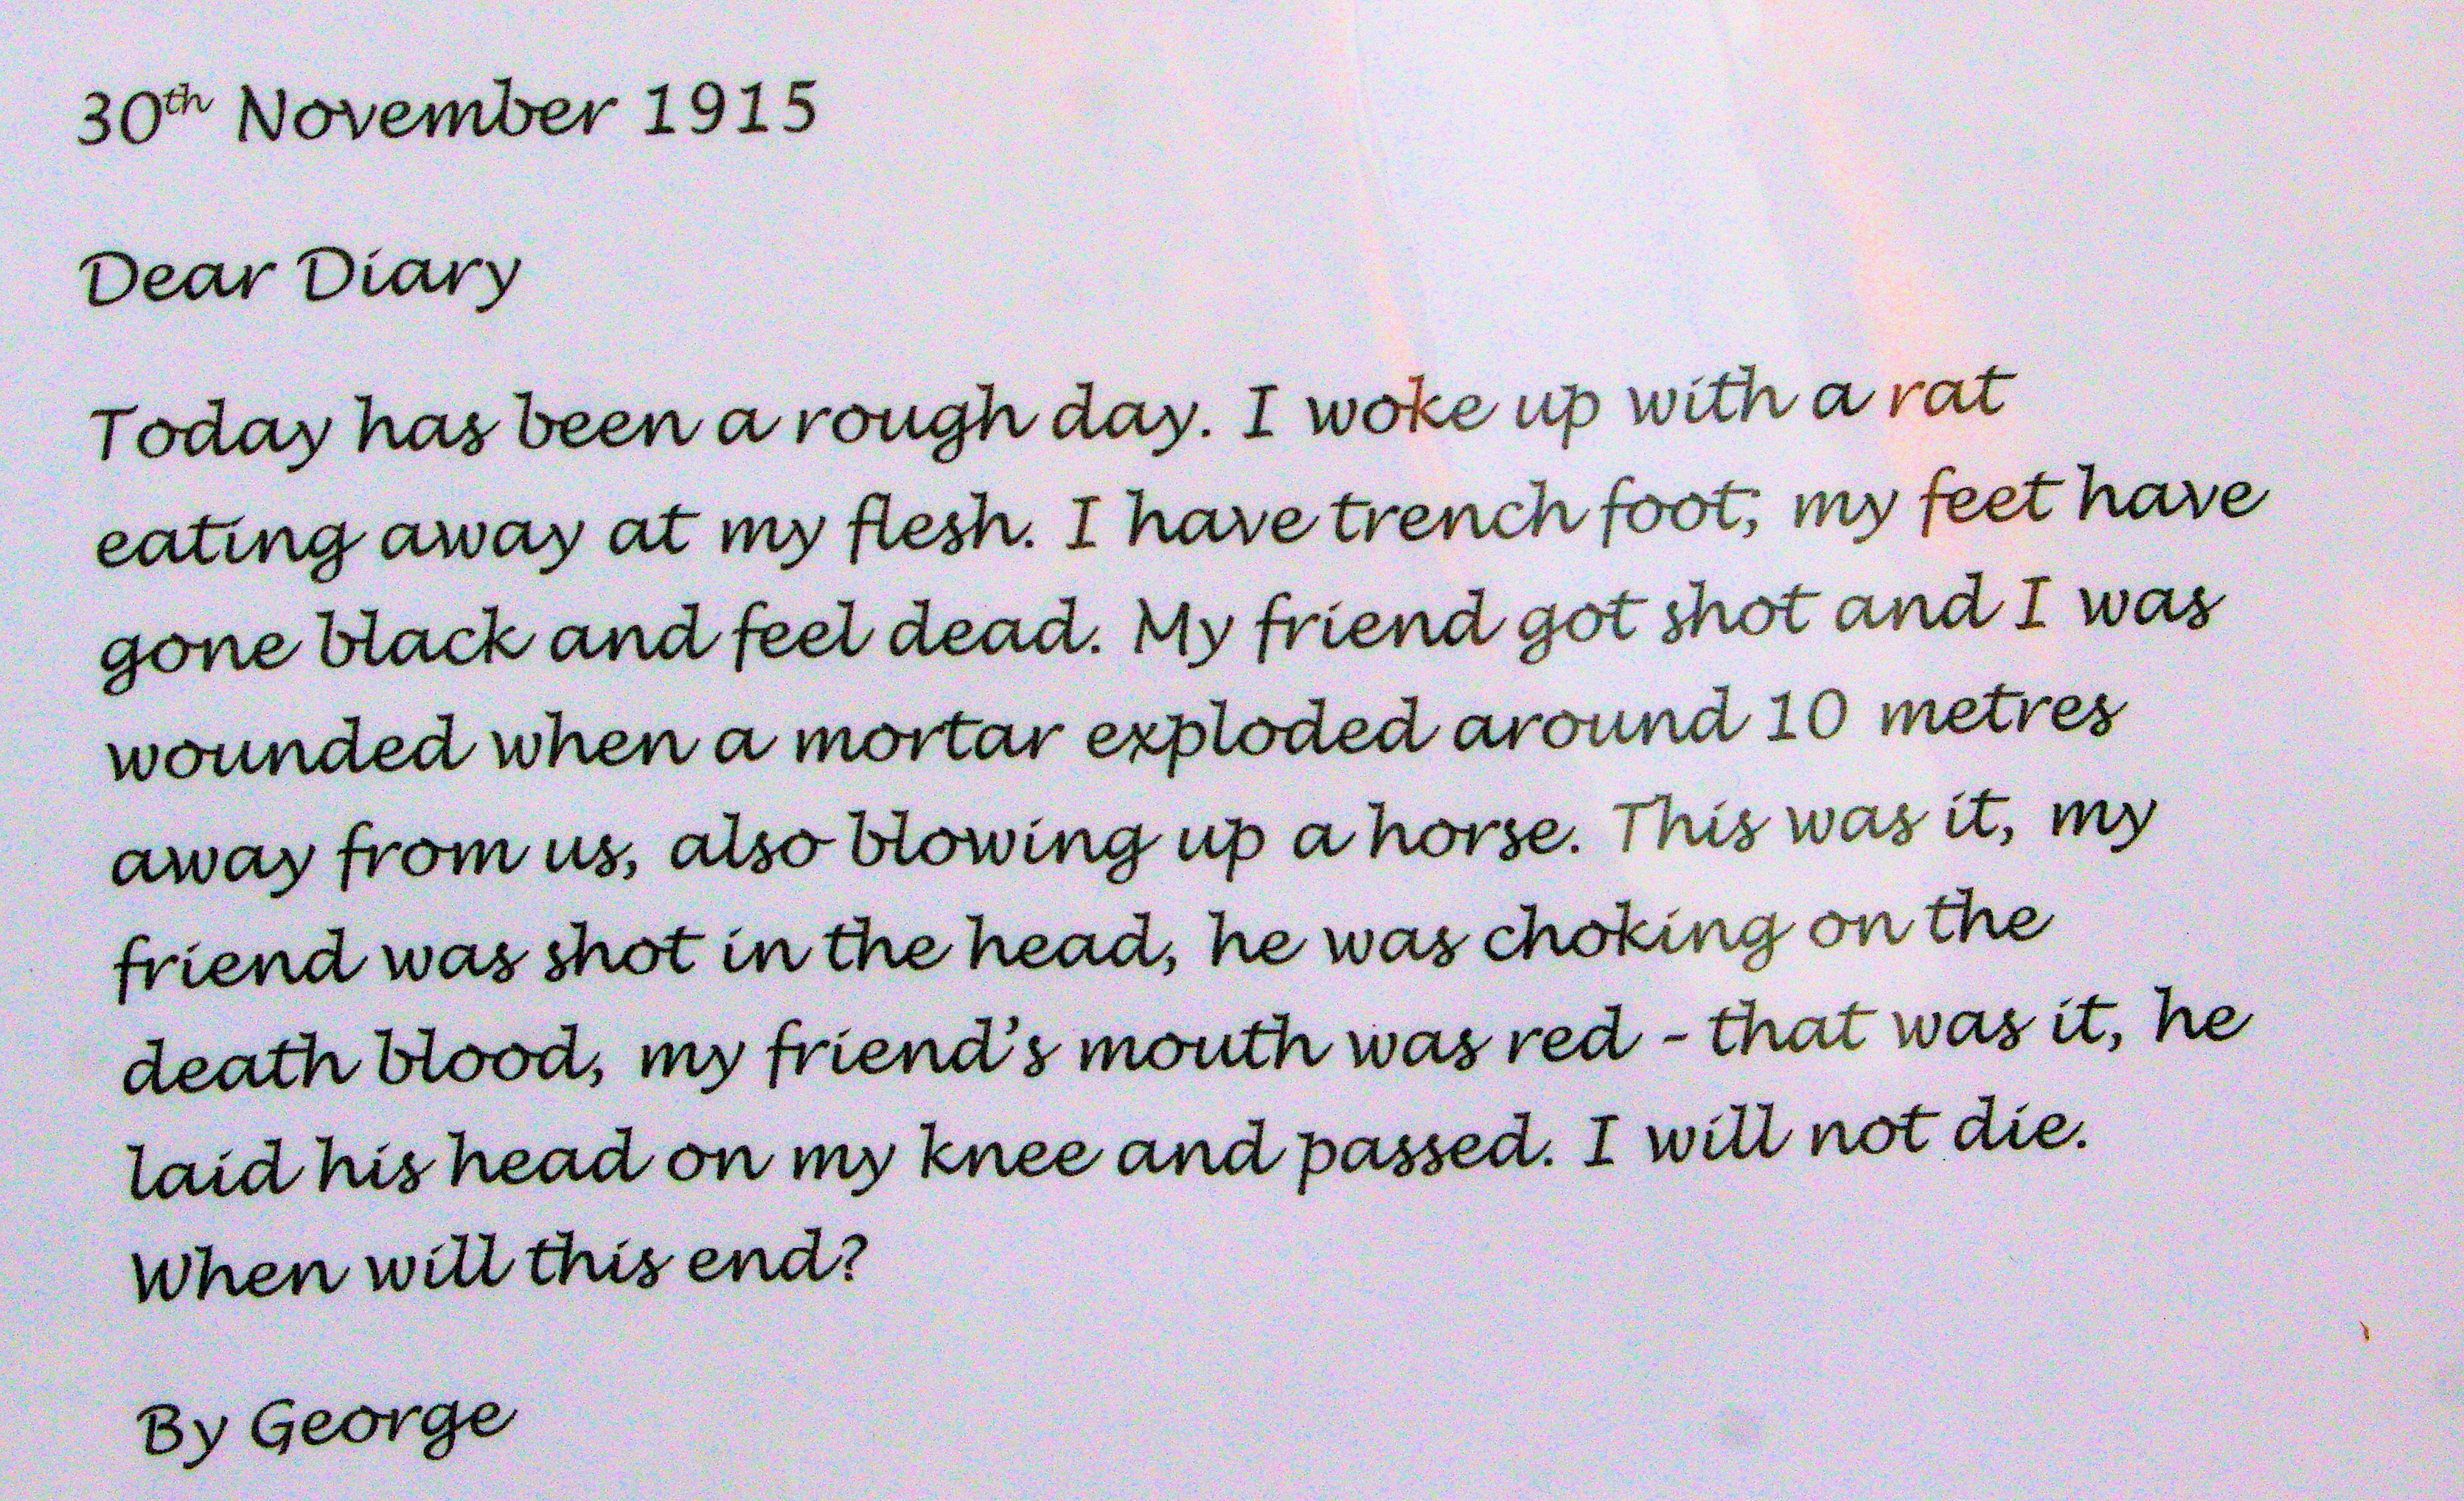 30th November 1915
Dear Diary
Today has been a rough day. I woke up with a rat
eating away at my flesh. I have trench foot; my feet have
gone black and feel dead. My friend got shot and I was
wounded when a mortar exploded around 10 metres
away from us, also blowing up a horse. This was it, my
friend was shot in the head, he was choking on the
death blood, my friend's mouth was red - that was it, he
laid his head on my knee and passed. I will not die.
When will this end?
By George